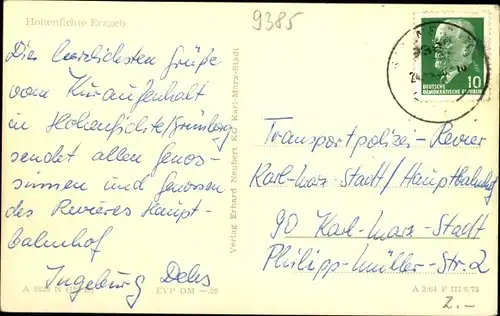 Hohenfichte Erzgeb.
9385
Die herzlichsten Grüße
vom Kuraufenhalt
in Hohenfichte/Grünberg
sendet allen Genos-
sinnen und Genossen
des Revieres Haupt-
bahnhof
Ingeburg
Verlag Erhard Neubert KG Karl-Marx-Stadt
10
DEUTSCHE
DEMOKRATISCHE REPUBLIK
Transportpolizei-Revier
Karl-Marx-Stadt/Hauptbahnhof
90 Karl-Marx-Stadt
Philipp-Müller-Str. 2
EVP DM —,20
A 2/64 P III 6/75
2.-